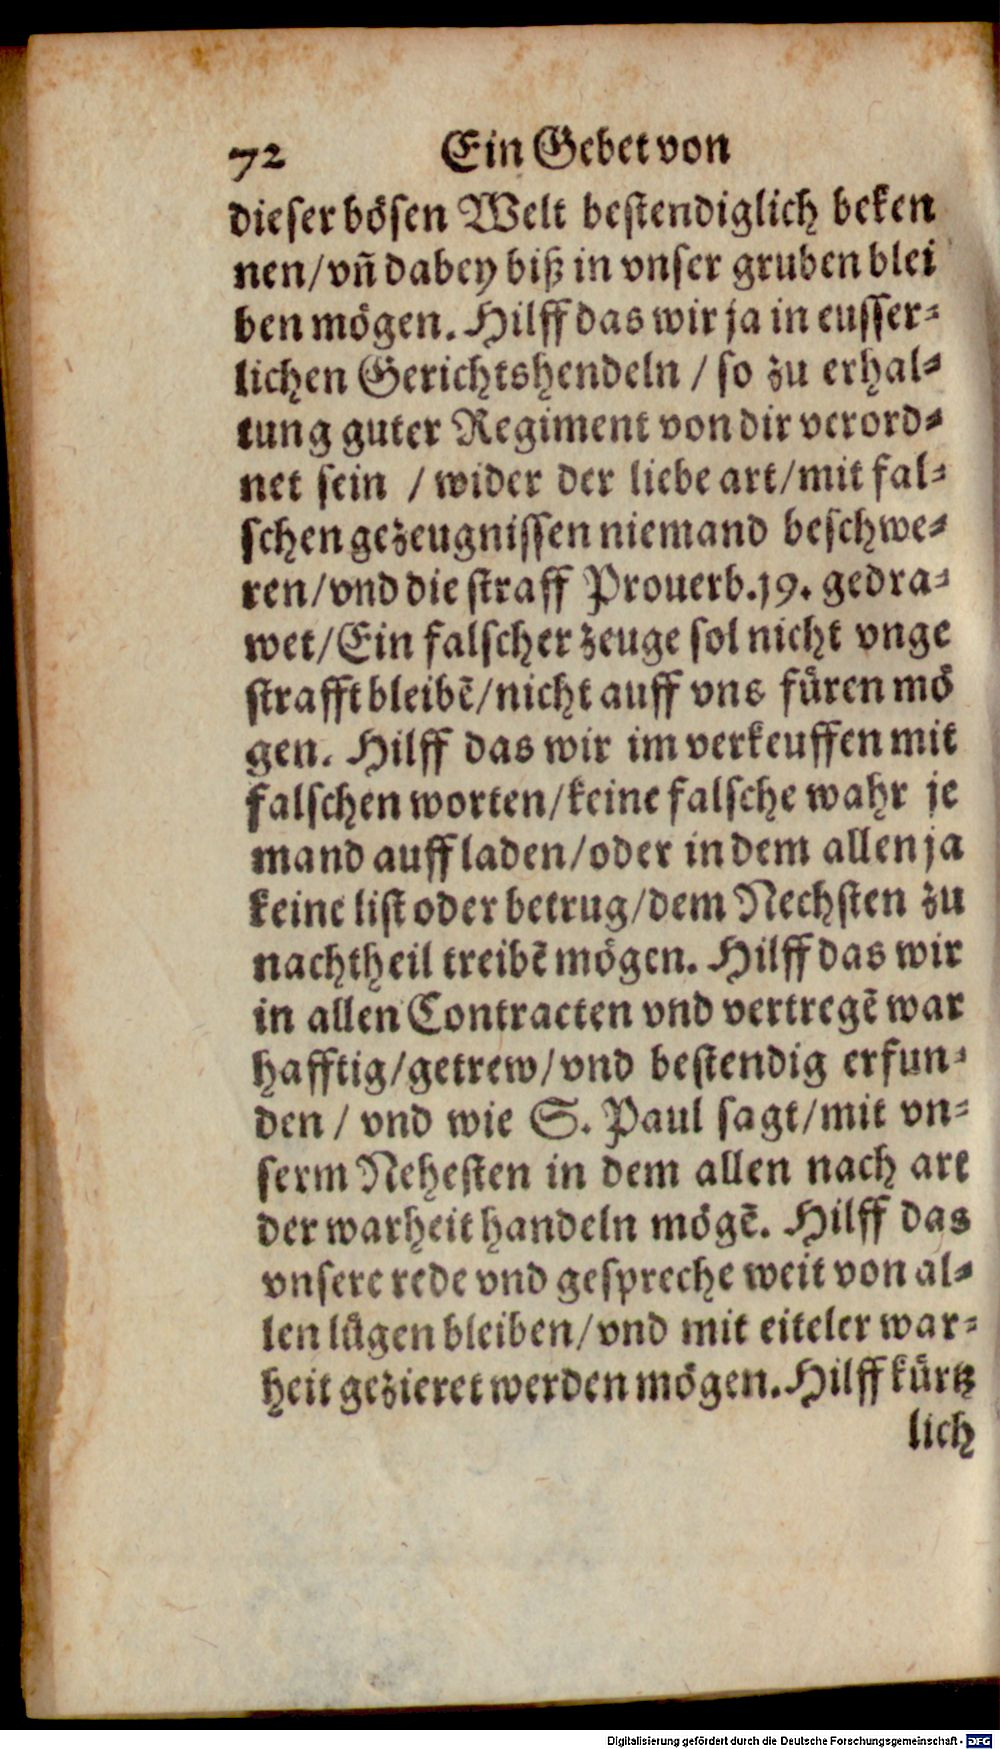 72 Ein Gebet von
dieser bösen Welt bestendiglich beken
nen/vñ dabey biß in vnser gruben blei
ben mögen. Hilff das wir ja in eusser-
lichen Gerichtshendeln / so zu erhal-
tung guter Regiment von dir verord-
net sein / wider der liebe art/mit fal-
schen gezeugnissen niemand beschwe-
ren/vnd die straff Prouerb.19. gedra-
wet/Ein falscher zeuge sol nicht vnge
strafft bleibẽ/nicht auff vns füren mö
gen. Hilff das wir im verkeuffen mit
falschen worten/keine falsche wahr je
mand auff laden/oder in dem allen ja
keine list oder betrug/dem Nechsten zu
nachtheil treibẽ mögen. Hilff das wir
in allen Contracten vnd vertregẽ war
hafftig/getrew/vnd bestendig erfun-
den / vnd wie S. Paul sagt/mit vn-
serm Nehesten in dem allen nach art
der warheit handeln mögẽ. Hilff das
vnsere rede vnd gespreche weit von al-
len lügen bleiben/vnd mit eiteler war-
heit gezieret werden mögen. Hilff kürtz
lich
Digitalisierung gefördert durch die Deutsche Forschungsgemeinschaft - DFG